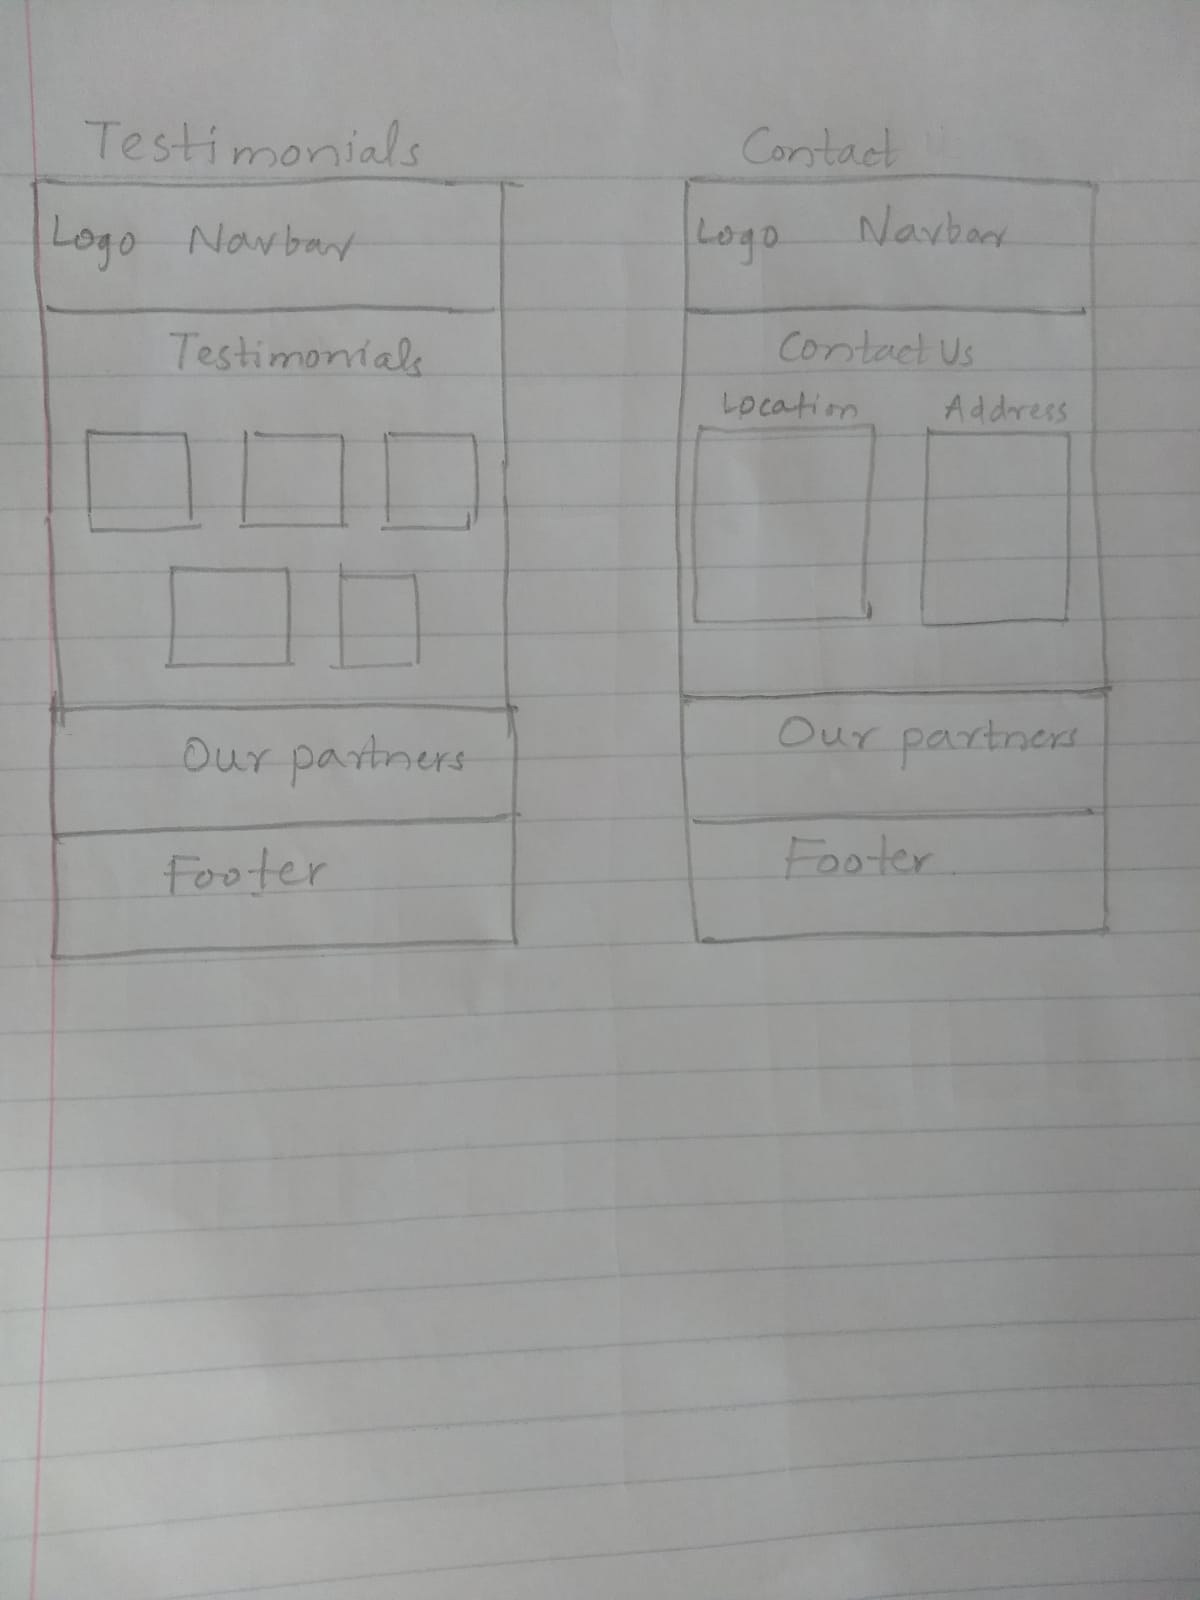 Testimonials
Logo Navbar
Testimonials
Our partners
Footer
Contact
Logo Navbar
Contact Us
Location Address
Our partners
Footer